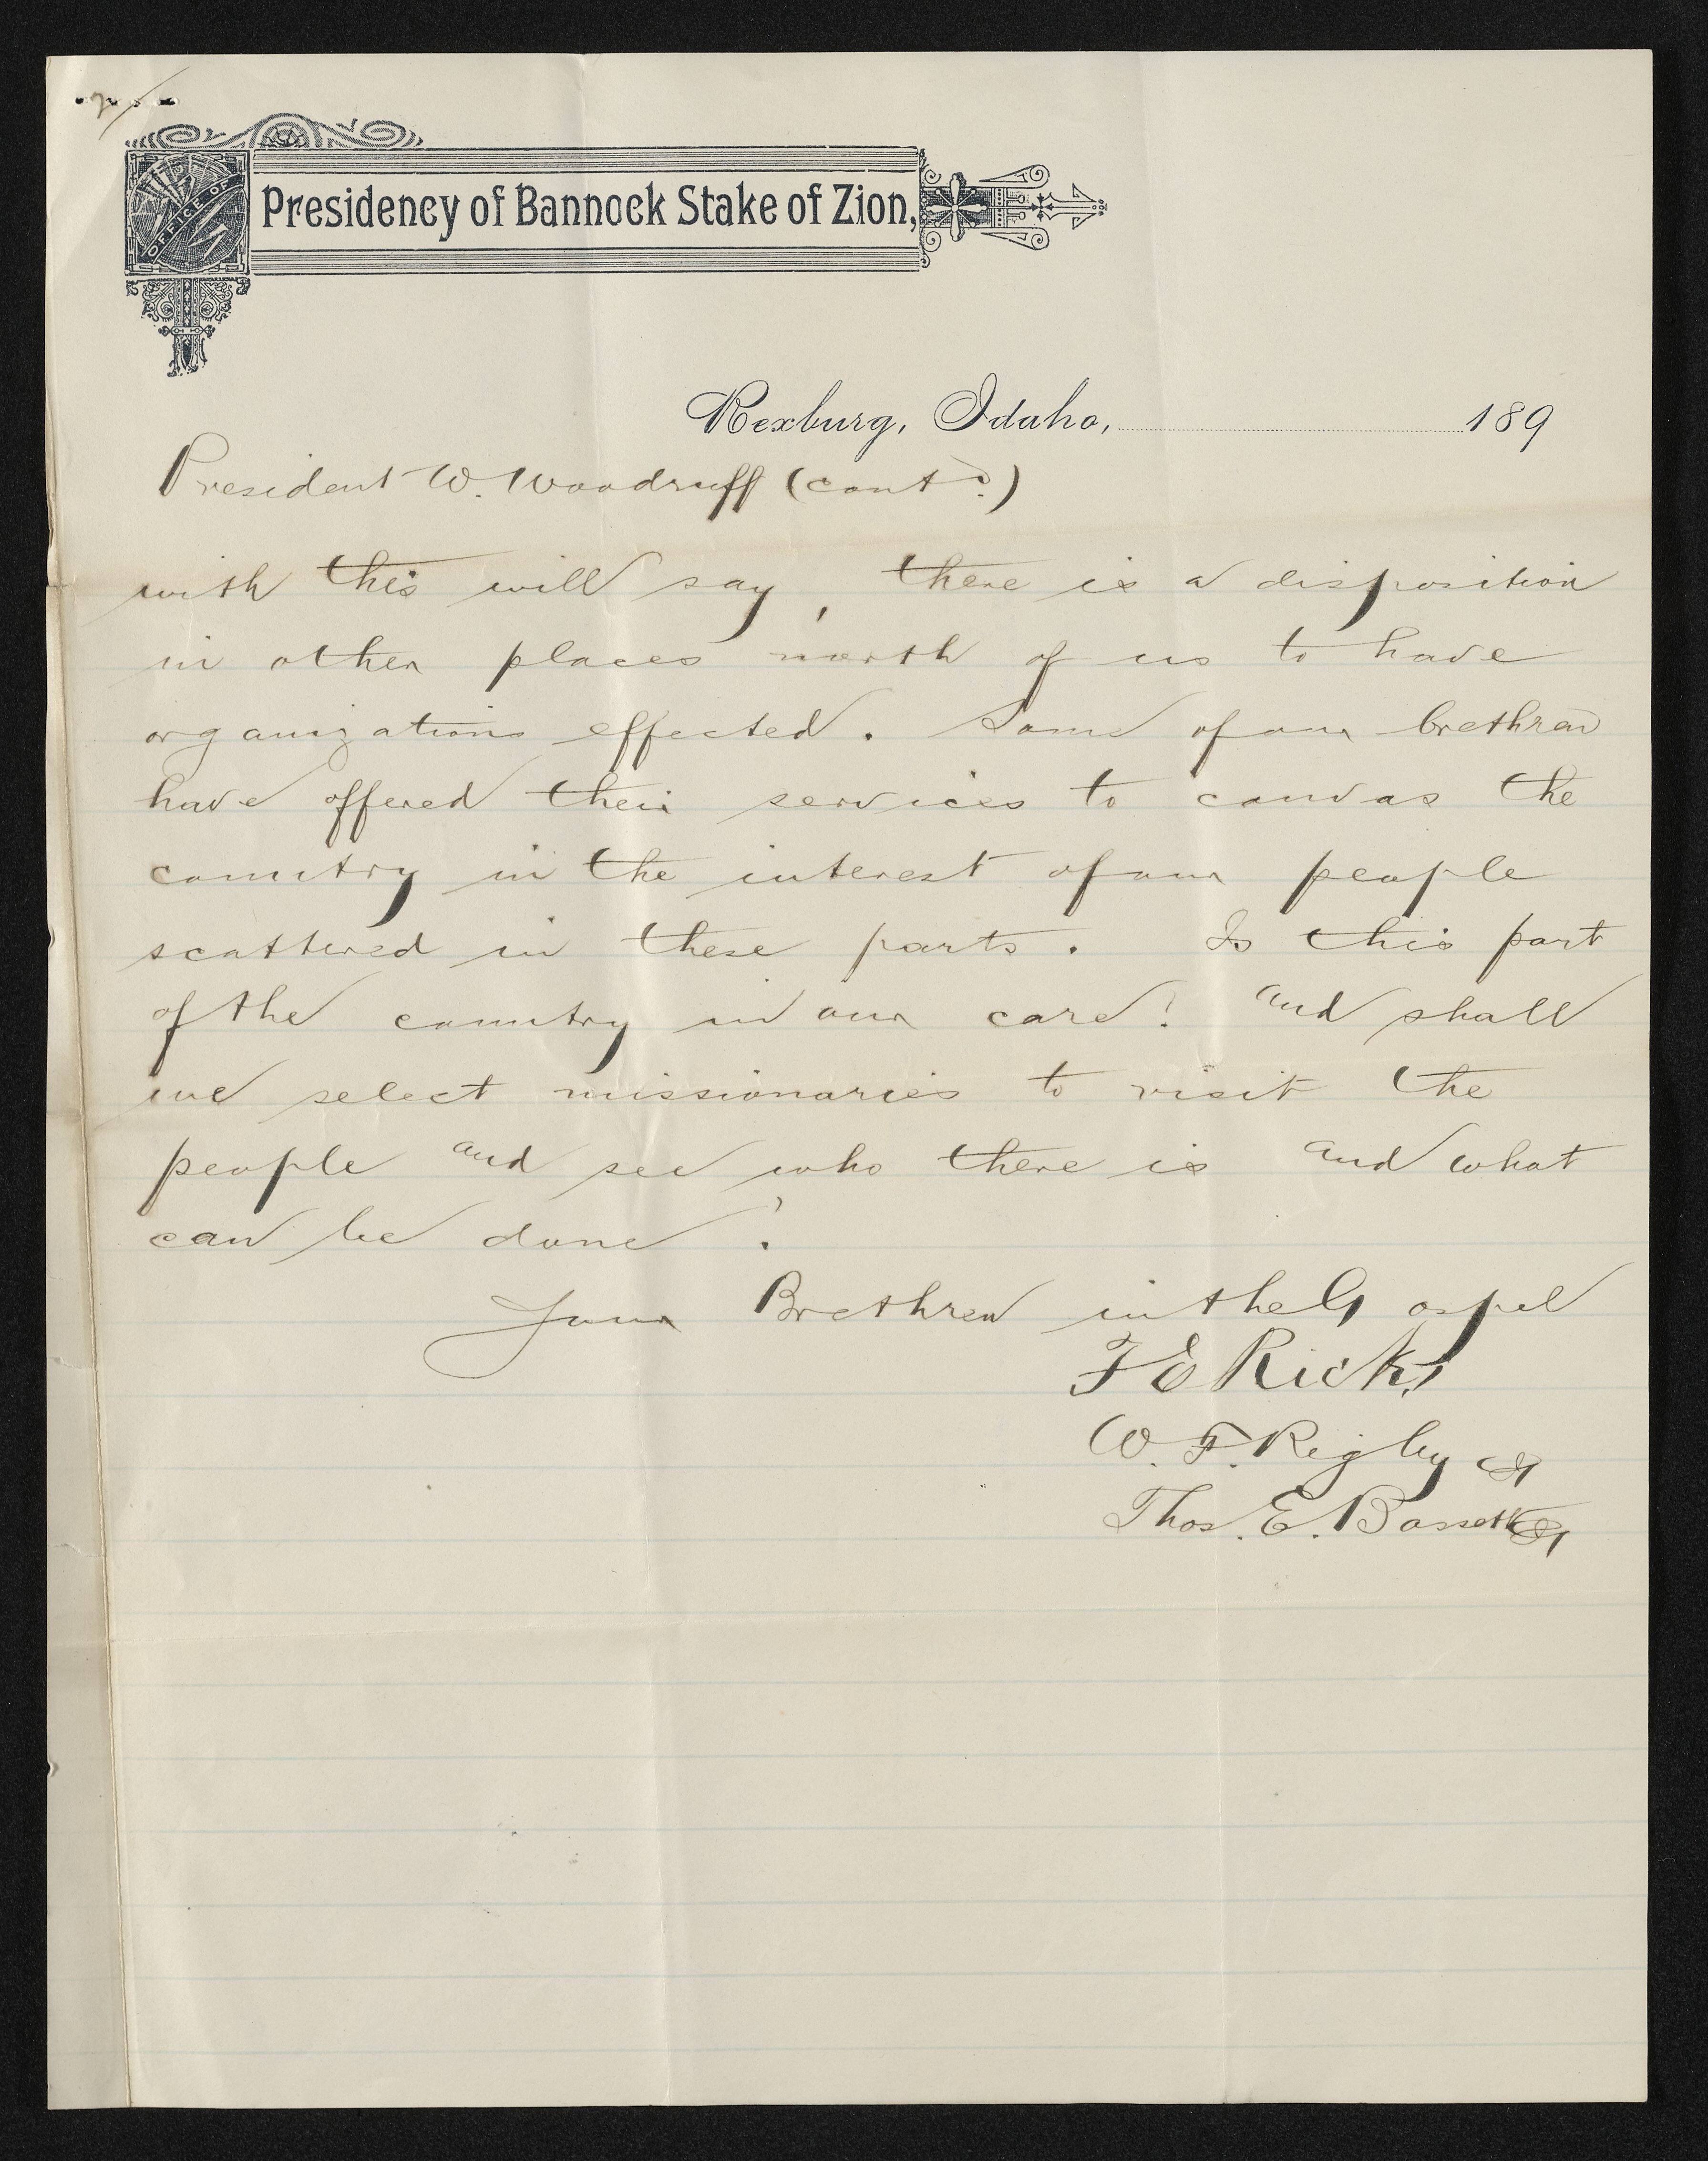 2/
OFFICE OF
Presidency of Bannock Stake of Zion,
Rexburg, Idaho, 189
President W. Woodruff (cont'd.)
with this will say, there is a disposition
in other places north of us to have
organizations effected. Some of our brethren
have offered their services to canvas the
country in the interest of our people
scattered in these parts. Is this part
of the country in our care? and shall
we select missionaries to visit the
people and see who there is and what
can be done?
Your Brethren in the Gospel
T E Ricks
W. F. Rigby
Thos. E. Bassett